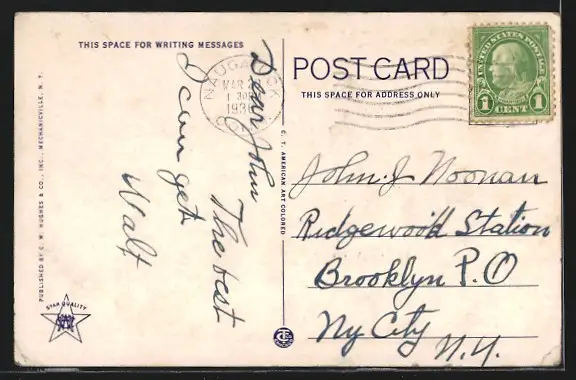 THIS SPACE FOR WRITING MESSAGES
Dear John
The best
I can get
Walt
PUBLISHED BY C. W. HUGHES & CO., INC., MECHANICVILLE, N. Y.
STAR QUALITY
C. T. AMERICAN ART COLORED
NAUGATUCK
MAR
1 30P
193
CONN
POST CARD
THIS SPACE FOR ADDRESS ONLY
UNITED STATES POSTAGE
1 CENT 1
John J Noonan
Ridgewood Station
Brooklyn P.O
Ny City
N.Y.